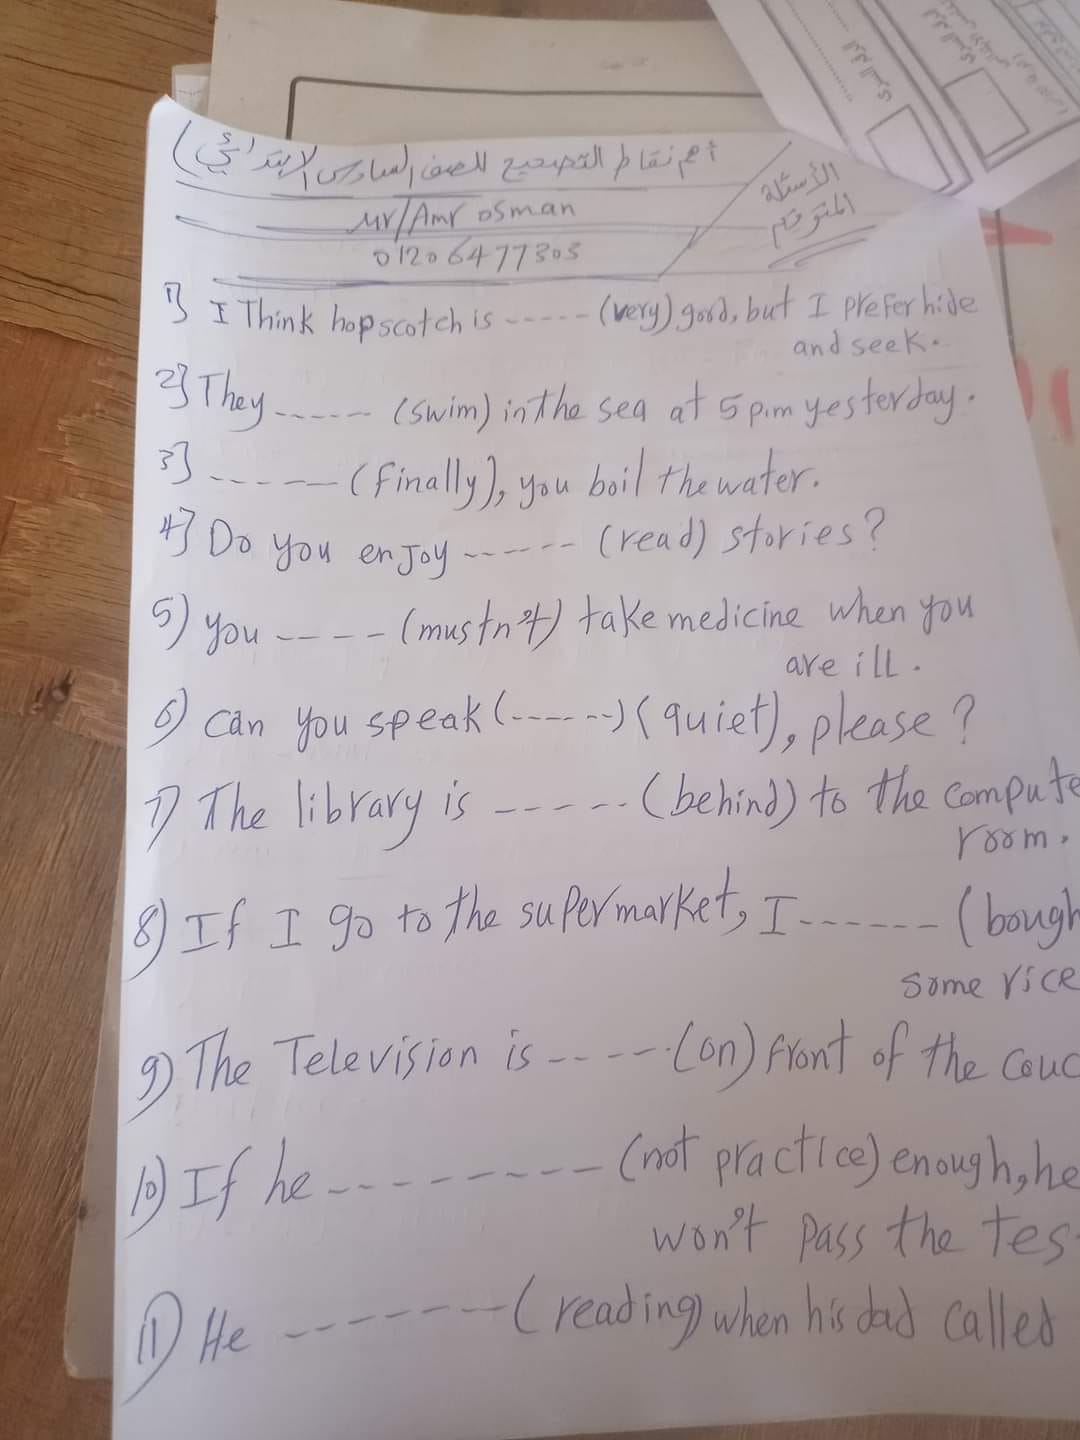 أهم نقاط التصحيح للصف السادس الابتدائي)
الأسئلة
المتوقعه
Mr/Amr osman
01206477303
1) I Think hopscotch is ------ (very) good, but I prefer hide
and seek.
2) They ------ (swim) in the sea at 5 p.m yesterday.
3) ------ (finally), you boil the water.
4) Do you enjoy ------ (read) stories?
5) you ---- (mustn't) take medicine when you
are ill.
6) can you speak (------) (quiet), please?
7) The library is ------ (behind) to the compute
room.
8) If I go to the supermarket, I ------ (bough
some rice
9) The Television is ----- (on) front of the couc
10) If he -------- (not practice) enough, he
won't pass the tes
11) He ------- (reading) when his dad called